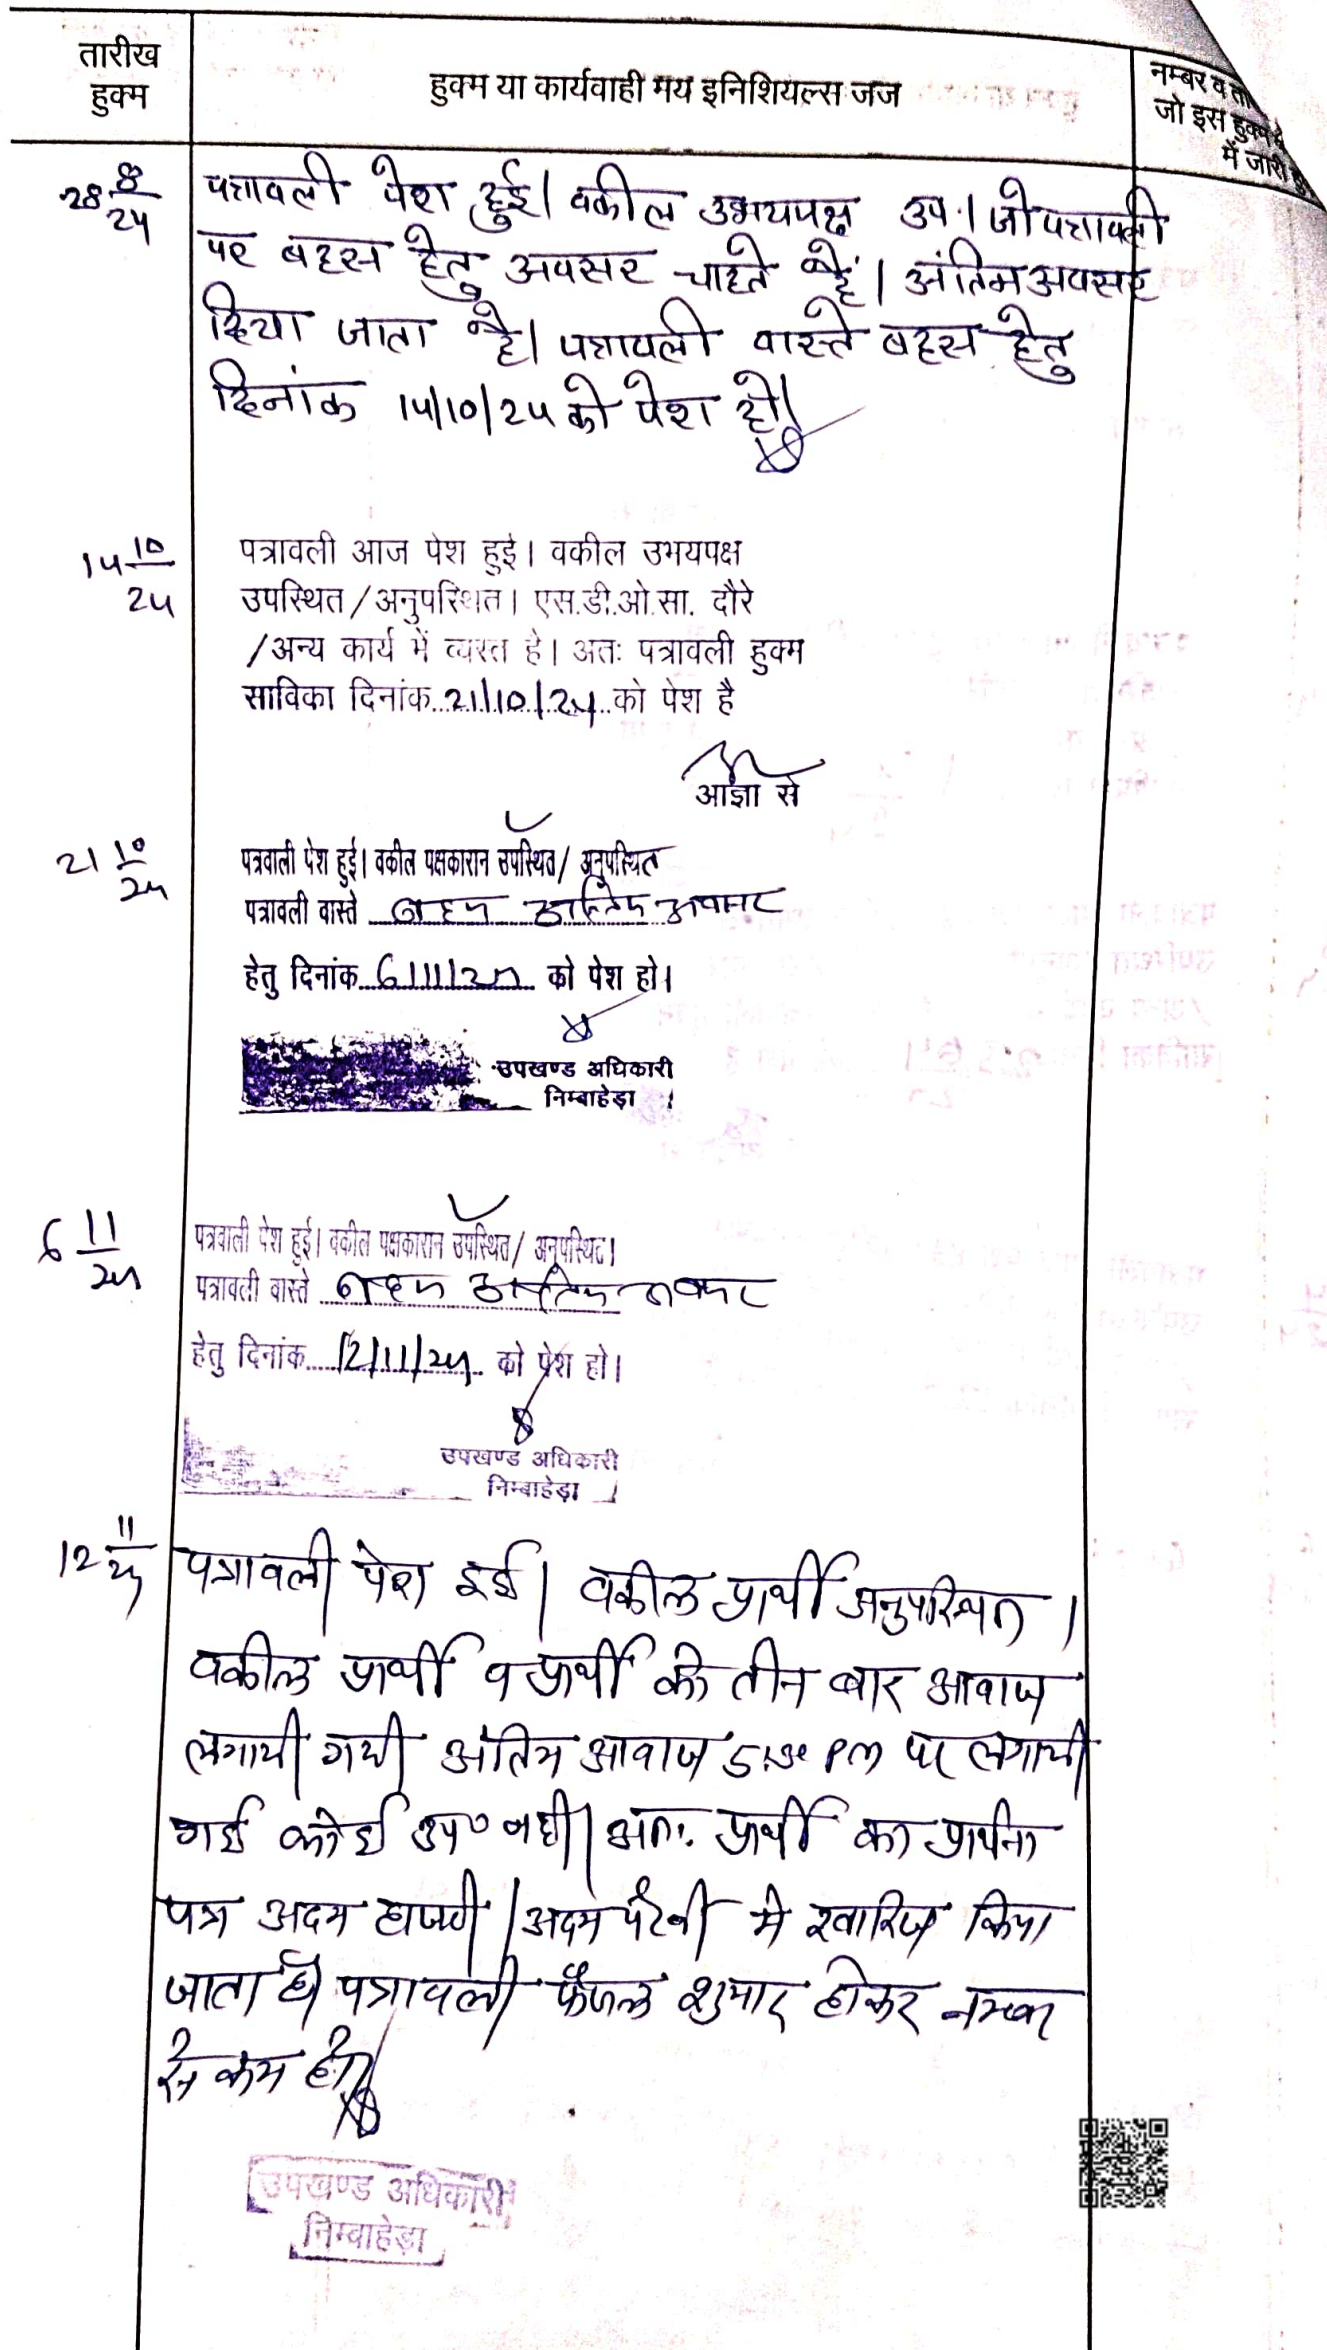 तारीख
हुक्म
हुक्म या कार्यवाही मय इनिशियल्स जज
नम्बर व ता
जो इस हुक्म
में जारी
28 8/24
पत्रावली पेश हुई। वकील उभयपक्ष उप.। जो पत्रावली
पर बहस हेतु अवसर चाहते है। अंतिम अवसर
दिया जाता है। पत्रावली वास्ते बहस हेतु
दिनांक 14/10/24 को पेश हो।
14 10/24
पत्रावली आज पेश हुई। वकील उभयपक्ष
उपस्थित/अनुपस्थित। एस.डी.ओ.सा. दौरे
/अन्य कार्य में व्यस्त है। अतः पत्रावली हुक्म
साविका दिनांक 21/10/24 को पेश है
आज्ञा से
21 10/24
पत्रवाली पेश हुई। वकील पक्षकारान उपस्थित/ अनुपस्थित
पत्रावली वास्ते बहस अन्तिम अवसर
हेतु दिनांक 6/11/24 को पेश हो।
उपखण्ड अधिकारी
निम्बाहेड़ा
6 11/24
पत्रवाली पेश हुई। वकील पक्षकारान उपस्थित/ अनुपस्थित।
पत्रावली वास्ते बहस अन्तिम अवसर
हेतु दिनांक 12/11/24 को पेश हो।
उपखण्ड अधिकारी
निम्बाहेड़ा
12 11/24
पत्रावली पेश हुई। वकील प्रार्थी अनुपस्थित।
वकील प्रार्थी व प्रार्थी को तीन बार आवाज
लगायी गयी अंतिम आवाज PM पर लगायी
गई कोई उप० नही। अतः प्रार्थी का प्रार्थना
पत्र अदम हाजरी/अदम पैरवी मे खारिज किया
जाता है पत्रावली फैसल शुमार होकर नम्बर
से कम हो।
उपखण्ड अधिकारी
निम्बाहेड़ा